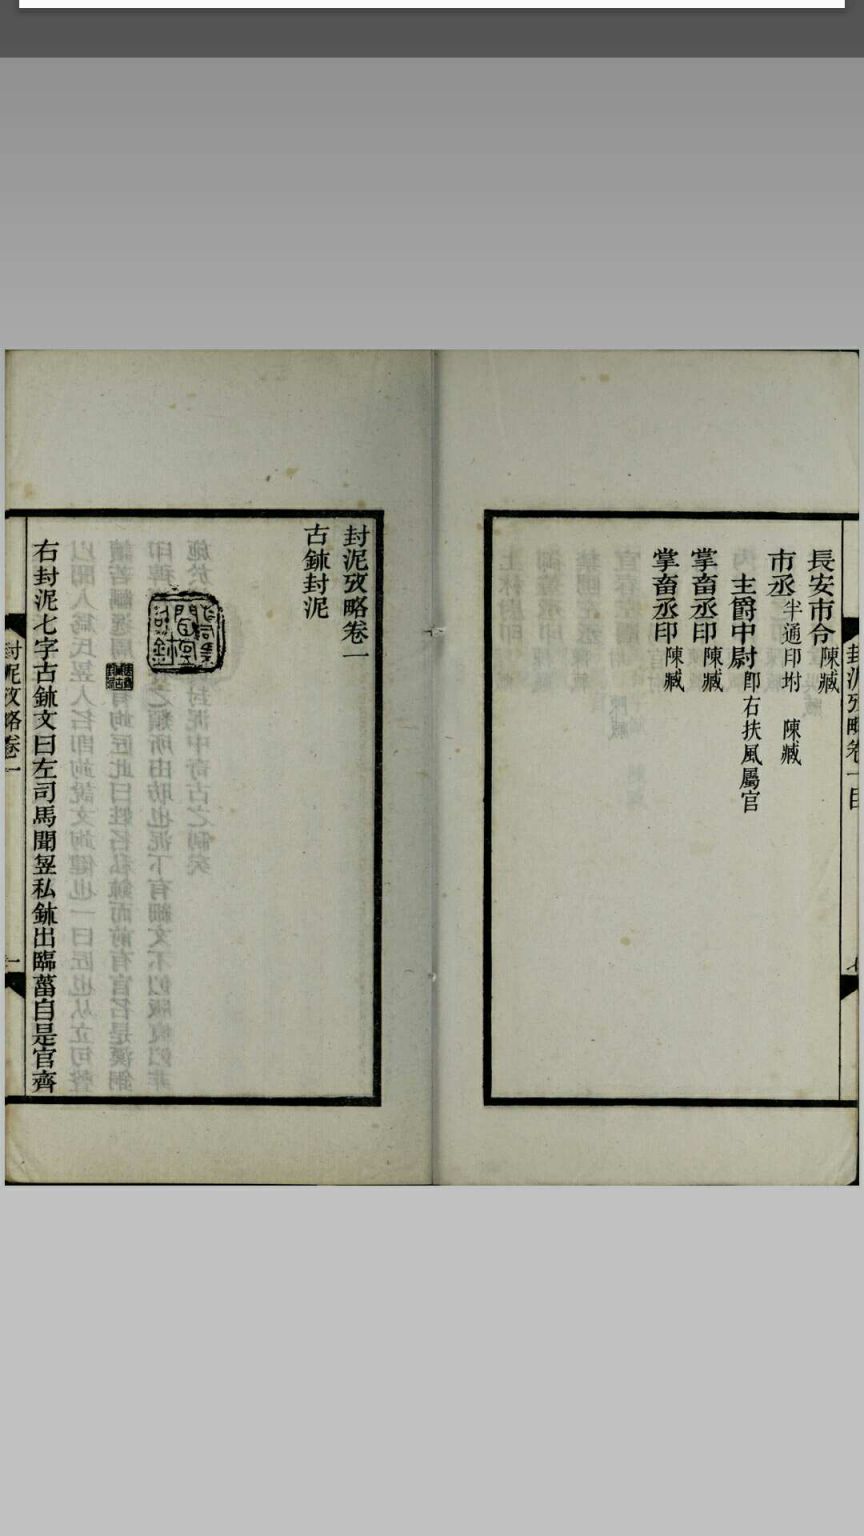 長安市令 陳臧
市丞 半通印坿 陳臧
主爵中尉 卽右扶風屬官
掌畜丞印 陳臧
掌畜丞印 陳臧
封泥攷略卷一
古鉥封泥
右封泥七字古鉥文曰左司馬聞䇔私鉥出臨菑自是官齊
封泥攷略卷一
一